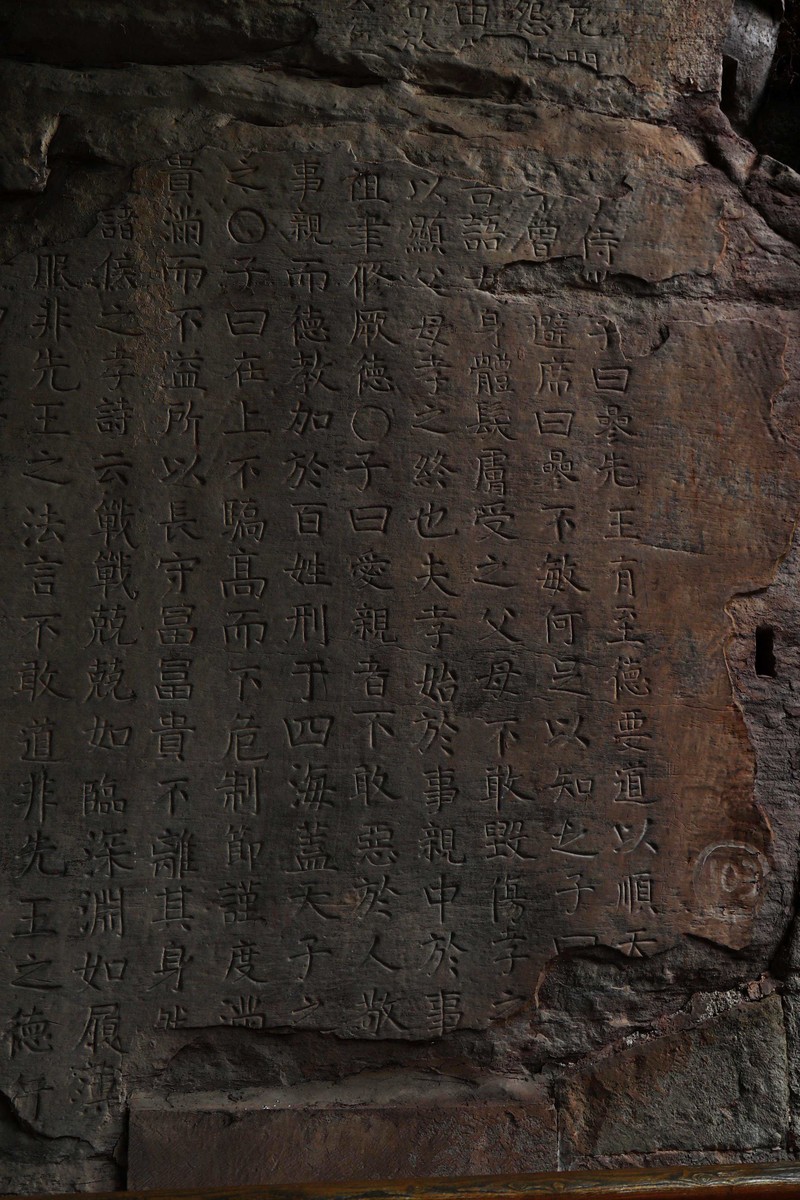 怨
由
侍 子曰參先王有至德要道以順天
曾 避席曰參不敏何足以知之子曰
語 身體髮膚受之父母不敢毀傷孝之
以顯父母孝之終也夫孝始於事親中於事
祖聿脩厥德〇子曰愛親者不敢惡於人敬
事親而德教加於百姓刑于四海蓋天子之
之〇子曰在上不驕高而不危制節謹度滿
貴滿而不溢所以長守富富貴不離其身然
諸侯之孝詩云戰戰兢兢如臨深淵如履薄
服非先王之法言不敢道非先王之德行